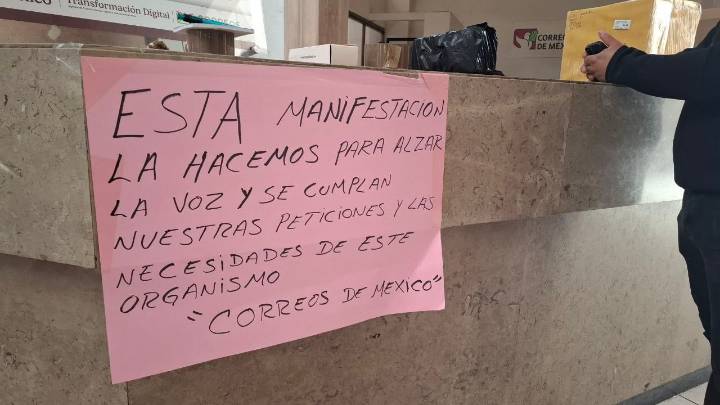 Transformación Digital
CORREOS
DE MÉXICO
ESTA MANIFESTACION
LA HACEMOS PARA ALZAR
LA VOZ Y SE CUMPLAN
NUESTRAS PETICIONES Y LAS
NECESIDADES DE ESTE
ORGANISMO
"CORREOS DE MEXICO"